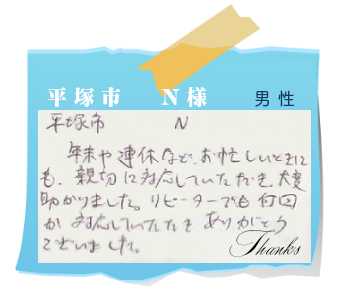 平塚市 N様 男性
平塚市 N
年末や連休など、お忙しいときに
も、親切に対応していただき、大変
助かりました。リピーターでも何回
か対応していただきありがとう
ございました。
Thanks